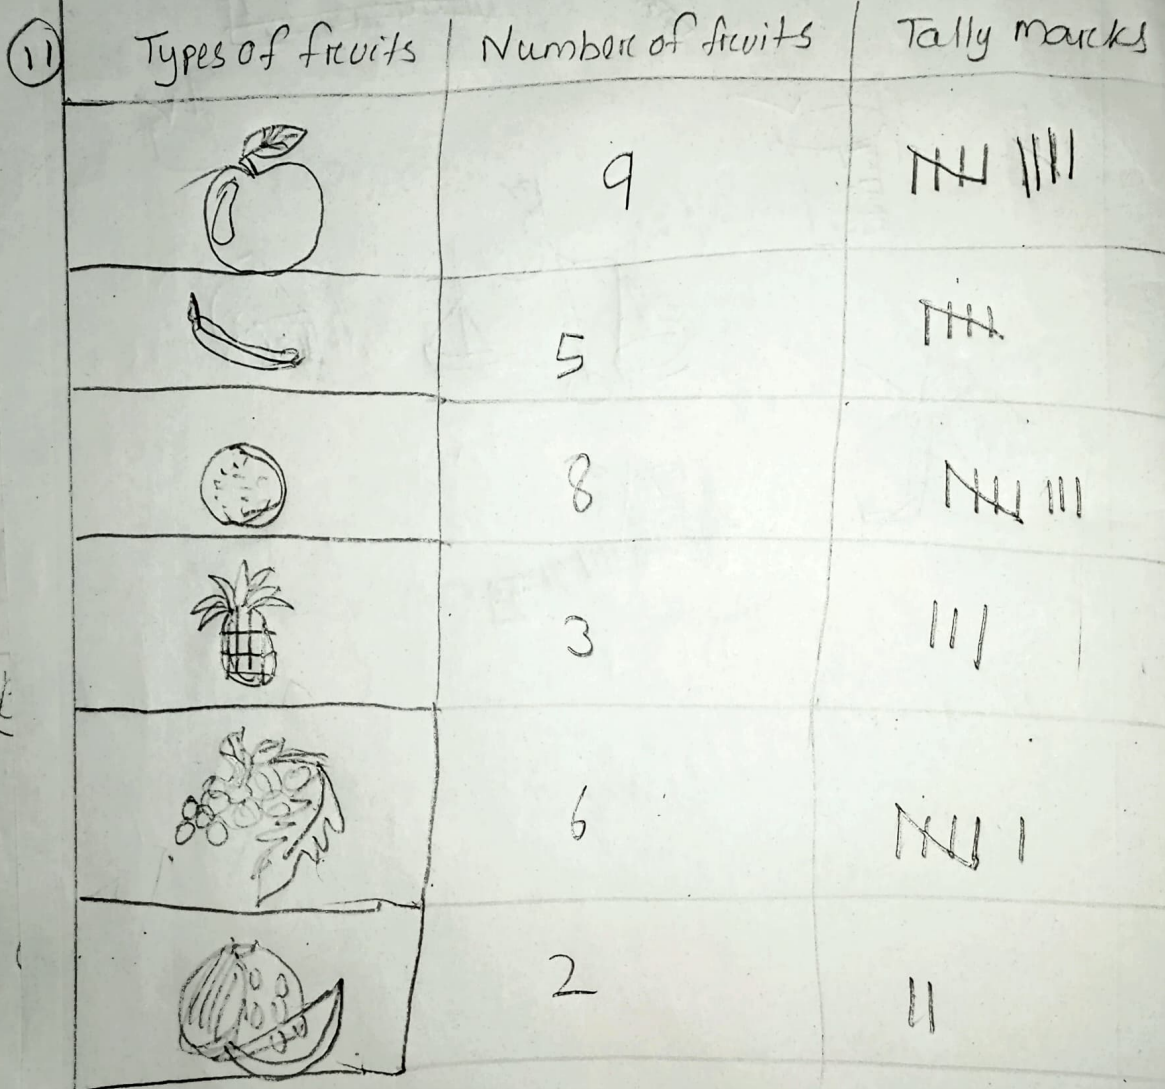 11 Types of fruits Number of fruits Tally marks
9
5
8
3
6
2